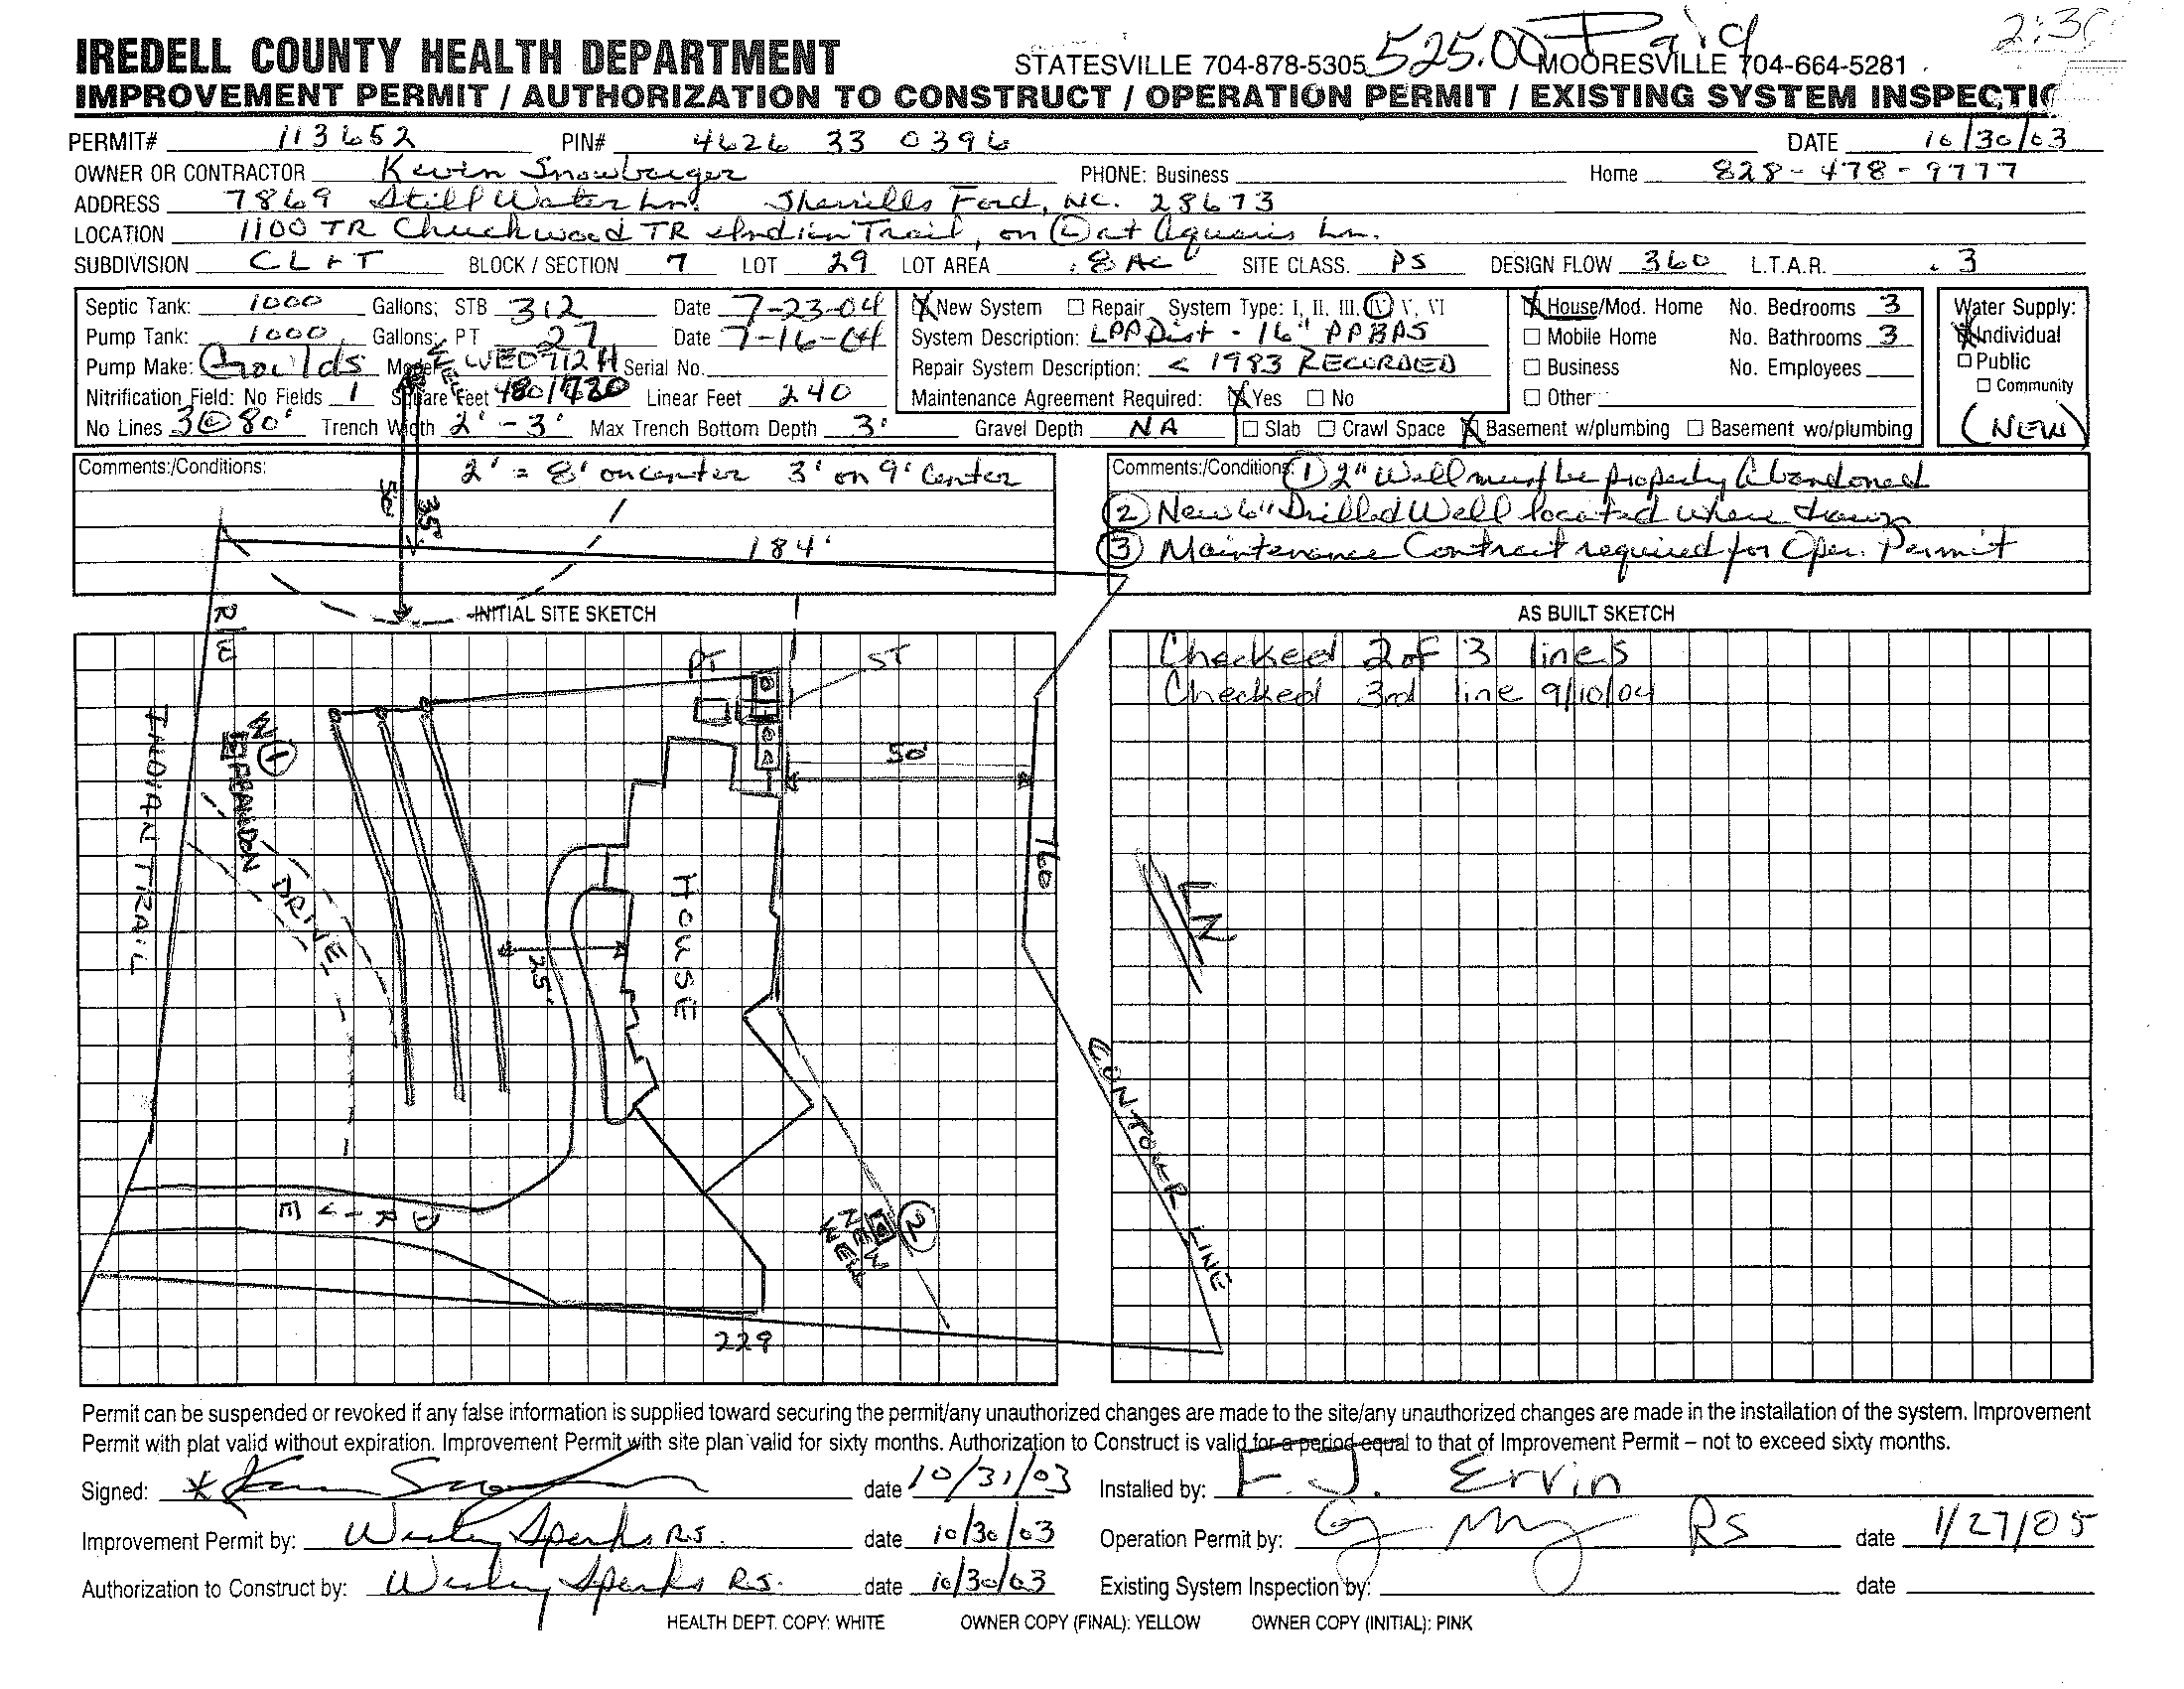 525.00 Paid
IREDELL COUNTY HEALTH DEPARTMENT STATESVILLE 704-878-5305 MOORESVILLE 704-664-5281
IMPROVEMENT PERMIT / AUTHORIZATION TO CONSTRUCT / OPERATION PERMIT / EXISTING SYSTEM INSPECTIO
PERMIT# 113652 PIN# 4626 33 0396 DATE 10/30/03
OWNER OR CONTRACTOR Kevin Snowbarger PHONE: Business Home 828-478-9777
ADDRESS 7869 Still Water Ln. Sherrills Ford, NC. 28673
LOCATION 1100 TR Chuckwood TR Indian Trail, on (L) at Aquaris Ln.
SUBDIVISION CL+T BLOCK / SECTION 7 LOT 29 LOT AREA .8 AC SITE CLASS. PS DESIGN FLOW 360 L.T.A.R. .3
Septic Tank: 1000 Gallons; STB 312 Date 7-23-04 X New System Repair System Type: I, II, III, IV, V, VI X House/Mod. Home No. Bedrooms 3 Water Supply:
Pump Tank: 1000 Gallons; PT 27 Date 7-16-04 System Description: LPP Dist - 16" PPBPS Mobile Home No. Bathrooms 3 X Individual
Pump Make: Goulds Model WED712H Serial No. Repair System Description: < 1983 RECORDED Business No. Employees Public
Nitrification Field: No Fields 1 Square Feet 480/720 Linear Feet 240 Maintenance Agreement Required: X Yes No Other Community
No Lines 3@80' Trench Width 2'-3' Max Trench Bottom Depth 3' Gravel Depth NA Slab Crawl Space X Basement w/plumbing Basement wo/plumbing (NEW)
Comments:/Conditions: 2' = 8' on center 3' on 9' Center
Comments:/Conditions: (1) 2" Well must be properly Abandoned
(2) New 6" Drilled Well located where
(3) Maintenance Contract required for Oper. Permit
WELL
50'
35'
184'
R/W
INITIAL SITE SKETCH
AS BUILT SKETCH
Checked 2 of 3 lines
Checked 3rd line 9/10/04
PT
ST
INDIAN TRAIL
W (1)
ABANDON
DRIVE
50'
760
HOUSE
25'
N
CONTOUR LINE
DRIVE
NEW WELL (2)
229
Permit can be suspended or revoked if any false information is supplied toward securing the permit/any unauthorized changes are made to the site/any unauthorized changes are made in the installation of the system. Improvement
Permit with plat valid without expiration. Improvement Permit with site plan valid for sixty months. Authorization to Construct is valid for a period equal to that of Improvement Permit – not to exceed sixty months.
Signed: date 10/31/03 Installed by: F. J. Ervin
Improvement Permit by: Wesley Sparks R.S. date 10/30/03 Operation Permit by: RS date 1/27/05
Authorization to Construct by: Wesley Sparks R.S. date 10/30/03 Existing System Inspection by: date
HEALTH DEPT. COPY: WHITE OWNER COPY (FINAL): YELLOW OWNER COPY (INITIAL): PINK